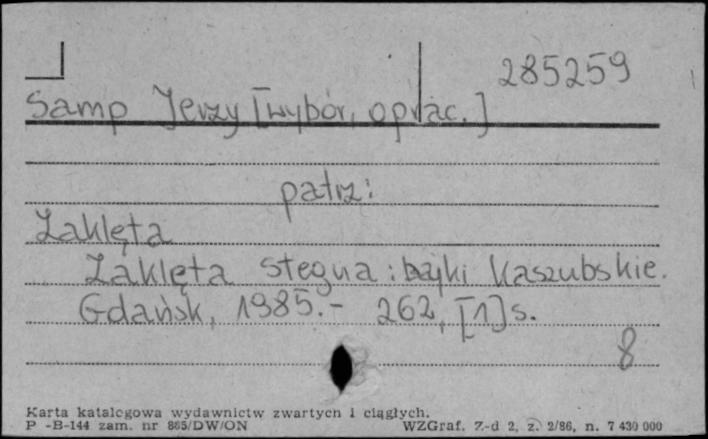 285259
Samp Jerzy [wybór, oprac.]
patrz:
Zaklęta
Zaklęta stegna : bajki kaszubskie.
Gdańsk, 1985.- 262, [1] s.
8
Karta katalogowa wydawnictw zwartych i ciągłych.
P -B-144 zam. nr 885/DW/ON WZGraf. Z-d 2, z. 2/86, n. 7 430 000